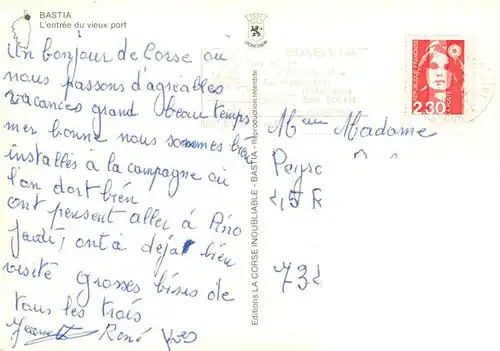 BASTIA
L'entrée du vieux port
Un bonjour de Corse où
nous passons d'agréables
vacances grand beau temps
mer bonne nous sommes bien
installés à la campagne où
l'on dort bien
ont pensent aller à Pino
jeudi, ont à déjat bien
visité grosses bises de
tous les trois
Jeannette René Yves
Editions LA CORSE INOUBLIABLE - BASTIA - Reproduction interdite
BASTIA
REPUBLIQUE FRANÇAISE
2,30
LA POSTE
Madame
Peyro
732